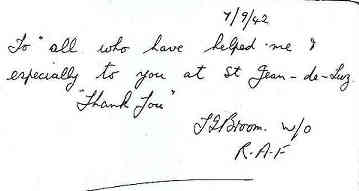 7/9/42
To "all who have helped me &
especially to you at St Jean-de-Luz.
"Thank You"
T J Broom. W/O
R.A.F